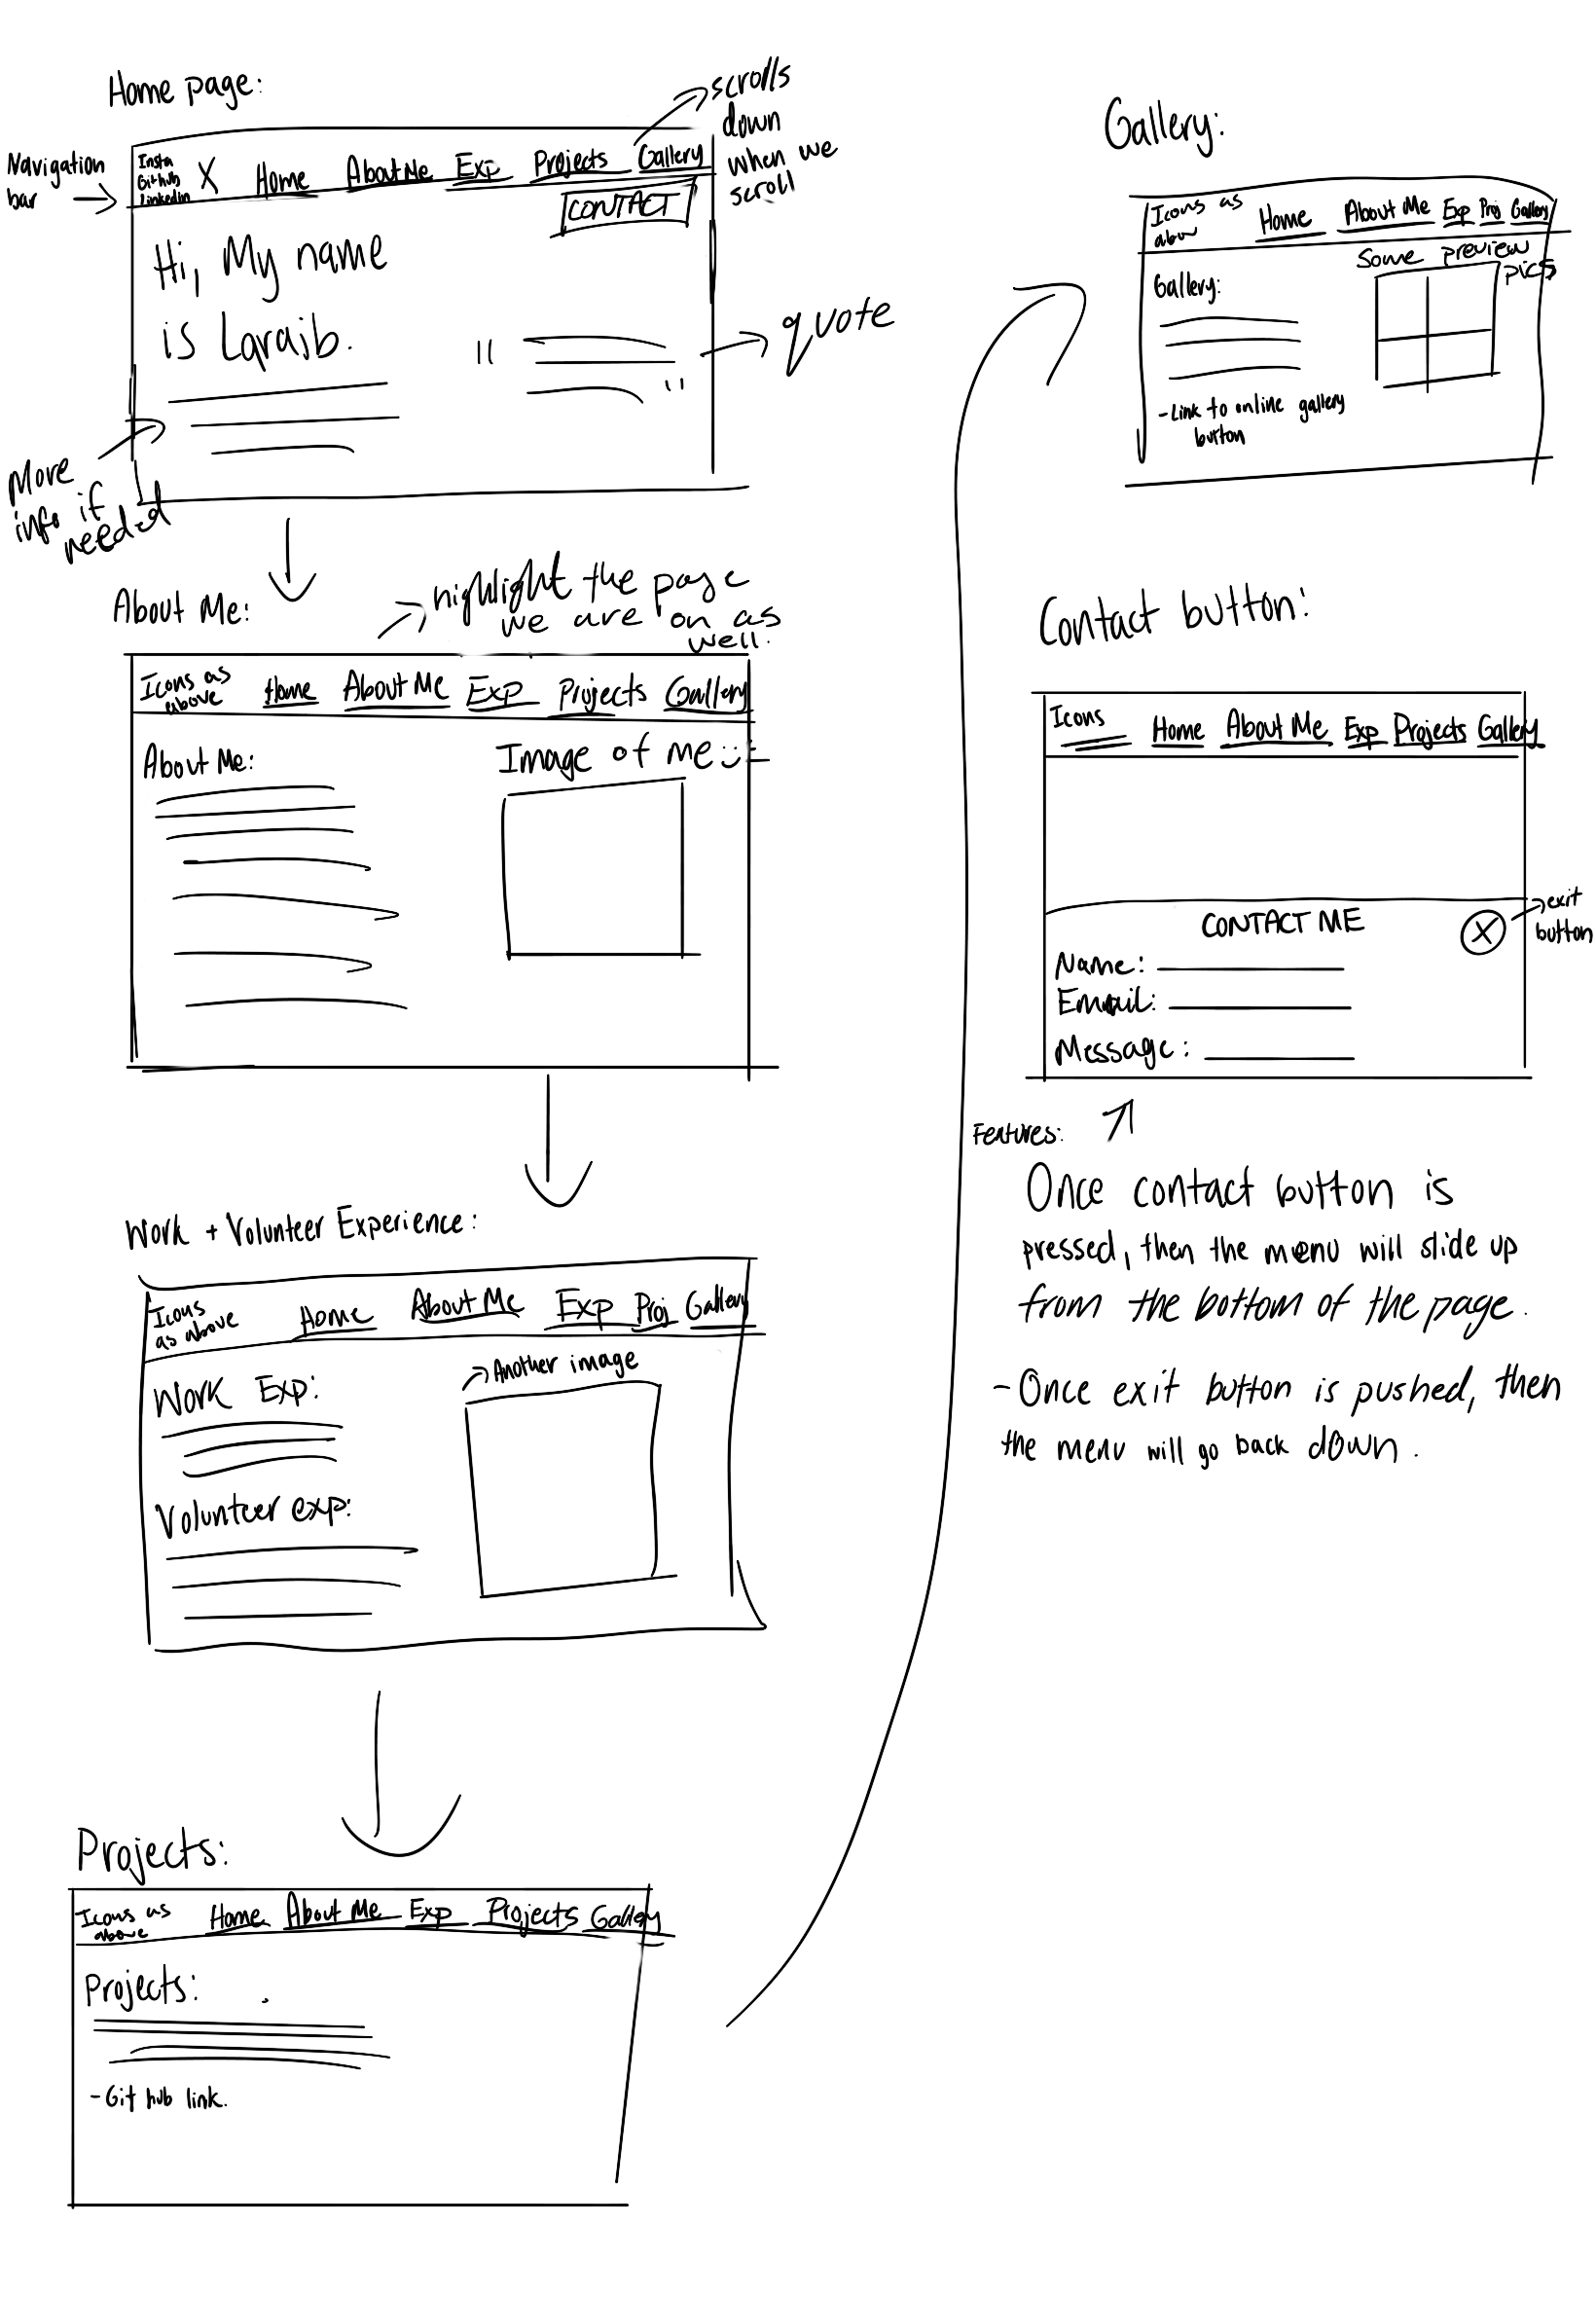 Home page:
scrolls
down
when we
scroll
Navigation
bar
Insta
Github
Linkedin
X
Home
About Me
Exp
Projects
Gallery
CONTACT
Hi, My name
is Laraib.
" "
quote
More
info if
needed
About Me:
highlight the page
we are on as
well.
Icons as
above
Home
About Me
Exp
Projects
Gallery
About Me:
Image of me
Work + Volunteer Experience:
Icons
as above
Home
About Me
Exp
Proj
Gallery
Another image
Work Exp:
Volunteer exp:
Projects:
Icons as
above
Home
About Me
Exp
Projects
Gallery
Projects:
- Git hub link.
Gallery:
Icons as
abov
Home
About Me
Exp
Proj
Gallery
Some preview
pics
Gallery:
- Link to online gallery
button
Contact button:
Icons
Home
About Me
Exp
Projects
Gallery
CONTACT ME
X
exit
button
Name:
Email:
Message:
Features:
Once contact button is
pressed, then the menu will slide up
from the bottom of the page.
- Once exit button is pushed, then
the menu will go back down.